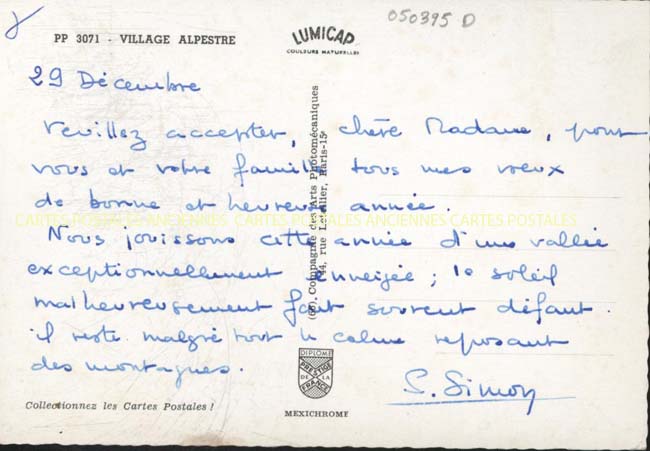 050395 D
PP 3071 - VILLAGE ALPESTRE
LUMICAP
COULEURS NATURELLES
29 Décembre
Veuillez accepter, chère Madame, pour
vous et votre famille tous mes vœux
de bonne et heureuse année.
CARTES POSTALES ANCIENNES CARTES POSTALES ANCIENNES CARTES POSTALES
Nous jouissons cette année d'une vallée
exceptionnellement enneigée ; le soleil
malheureusement fait souvent défaut.
il reste malgré tout le calme reposant
des montagnes.
S. Simon
(66). Compagnie des Arts Photomécaniques
44, rue Letellier, Paris-15e
DIPLOME
PRESTIGE
DE LA
FRANCE
MEXICHROME
Collectionnez les Cartes Postales !